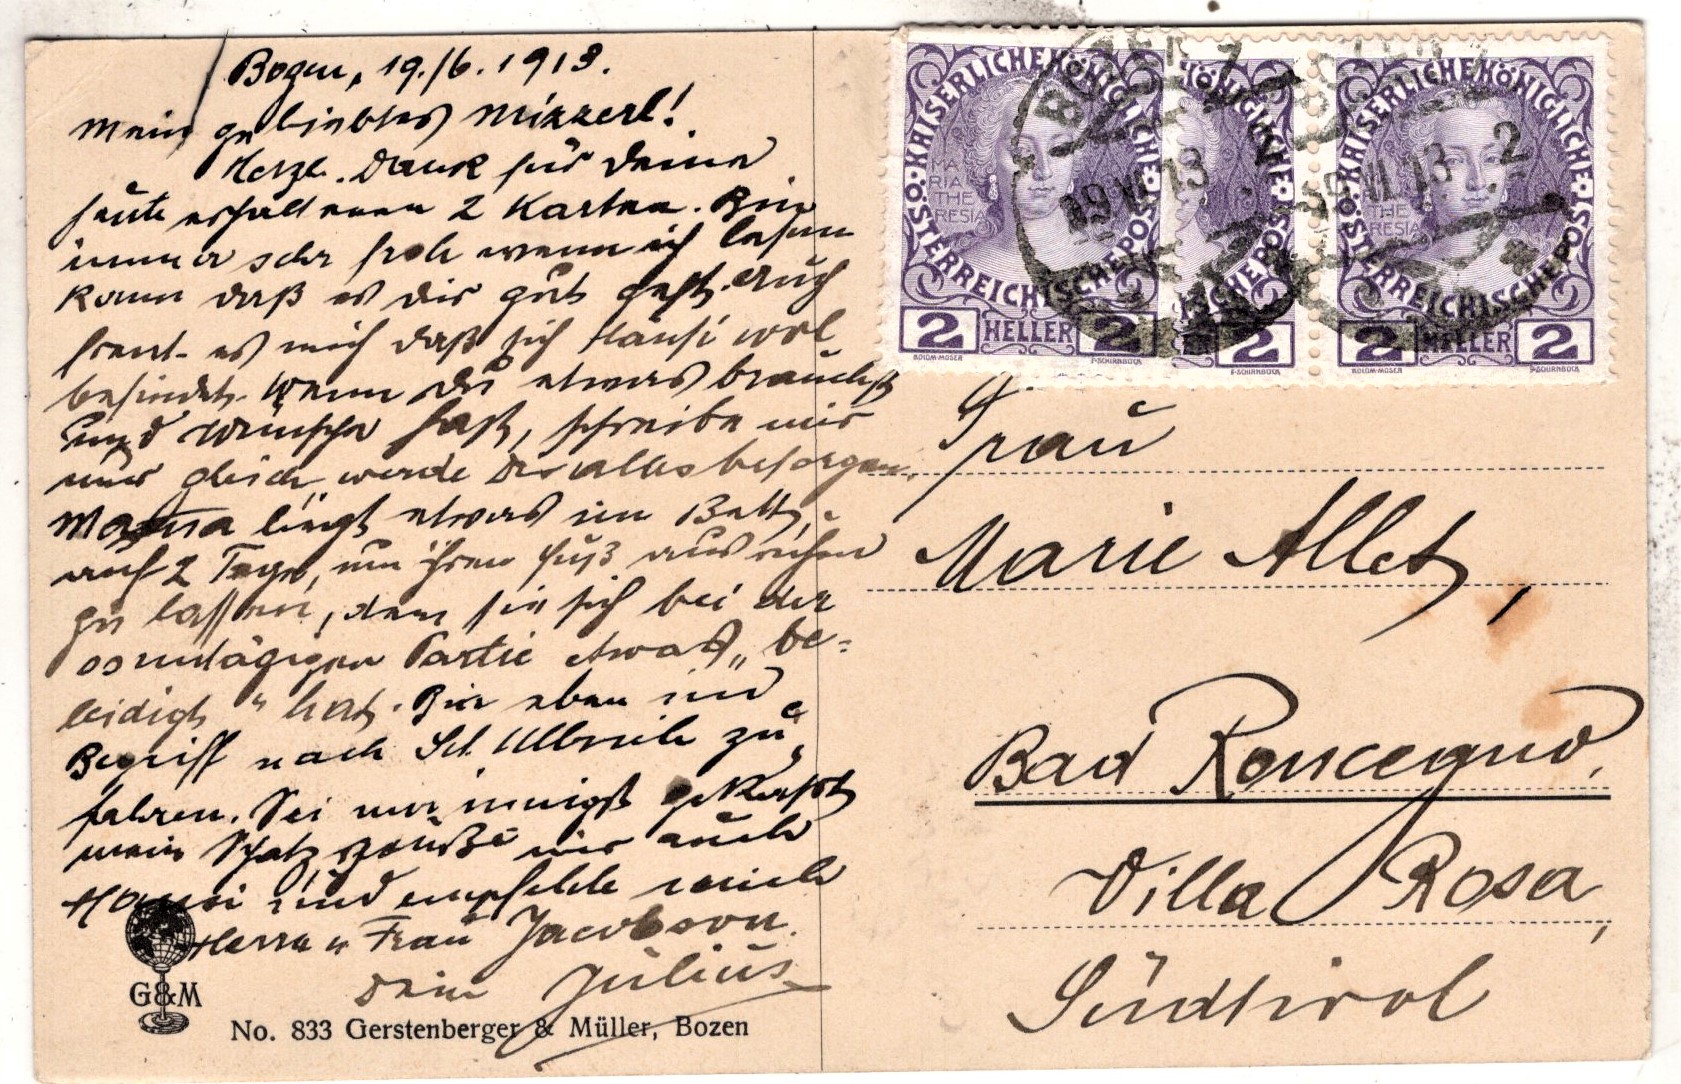 Bozen, 19./6. 1913.
Mein geliebtes Mizzerl!
Herzl. Dank für Deine
heute erhaltenen 2 Karten. Bin
immer sehr froh wenn ich lesen
kann daß es dir gut geht. Auch
freut es mich daß sich Hansi wol
befindet. Wenn du etwas brauchst
und Wünsche hast, schreibe mir
nur gleich werde dir alles besorgen.
Mama liegt etwas im Bett,
auf 2 Tage, um ihren Fuß ausruhen
zu lassen, den sie sich bei der
sonntägigen Partie etwas „be-
leidigt" hat. Bin eben im
Begriff nach St. Ulbrich zu
fahren. Sei nur innigst geküsst
mein Schatz, grüße mir auch
Hansi und empfehle mich
Herrn u Frau Jacobson.
Dein Julius
G&M
No. 833 Gerstenberger & Müller, Bozen
KAISERLICHE KÖNIGLICHE ÖSTERREICHISCHE POST
MARIA THERESIA
2 HELLER 2
KOLOM·MOSER F·SCHIRNBÖCK
KÖNIGLICHE
ISCHE POST
2
F·SCHIRNBÖCK
KAISERLICHE KÖNIGLICHE ÖSTERREICHISCHE POST
THERESIA
2 HELLER 2
KOLOM·MOSER F·SCHIRNBÖCK
BOZEN 2
19 VI 13
19 VI 13 2
Frau
Marie Allet,
Bad Roncegno,
Villa Rosa,
Südtirol